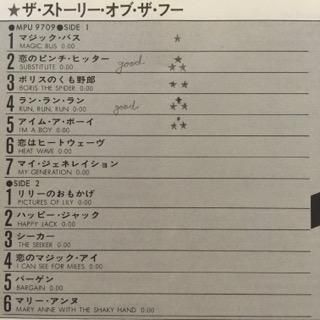 ★ザ・ストーリー・オブ・ザ・フー
●MPU 9709●SIDE 1
1 マジック・バス ★
MAGIC BUS 0.00
2 恋のピンチ・ヒッター good ★★★
SUBSTITUTE 0.00
3 ボリスのくも野郎 ★★
BORIS THE SPIDER 0.00
4 ラン・ラン・ラン good ★★★
RUN, RUN, RUN 0.00
5 アイム・ア・ボーイ ★★★
I'M A BOY 0.00
6 恋はヒートウェーヴ
HEAT WAVE 0.00
7 マイ・ジェネレイション
MY GENERATION 0.00
●SIDE 2
1 リリーのおもかげ
PICTURES OF LILY 0.00
2 ハッピー・ジャック
HAPPY JACK 0.00
3 シーカー
THE SEEKER 0.00
4 恋のマジック・アイ
I CAN SEE FOR MILES 0.00
5 バーゲン
BARGAIN 0.00
6 マリー・アンヌ
MARY ANNE WITH THE SHAKY HAND 0.00